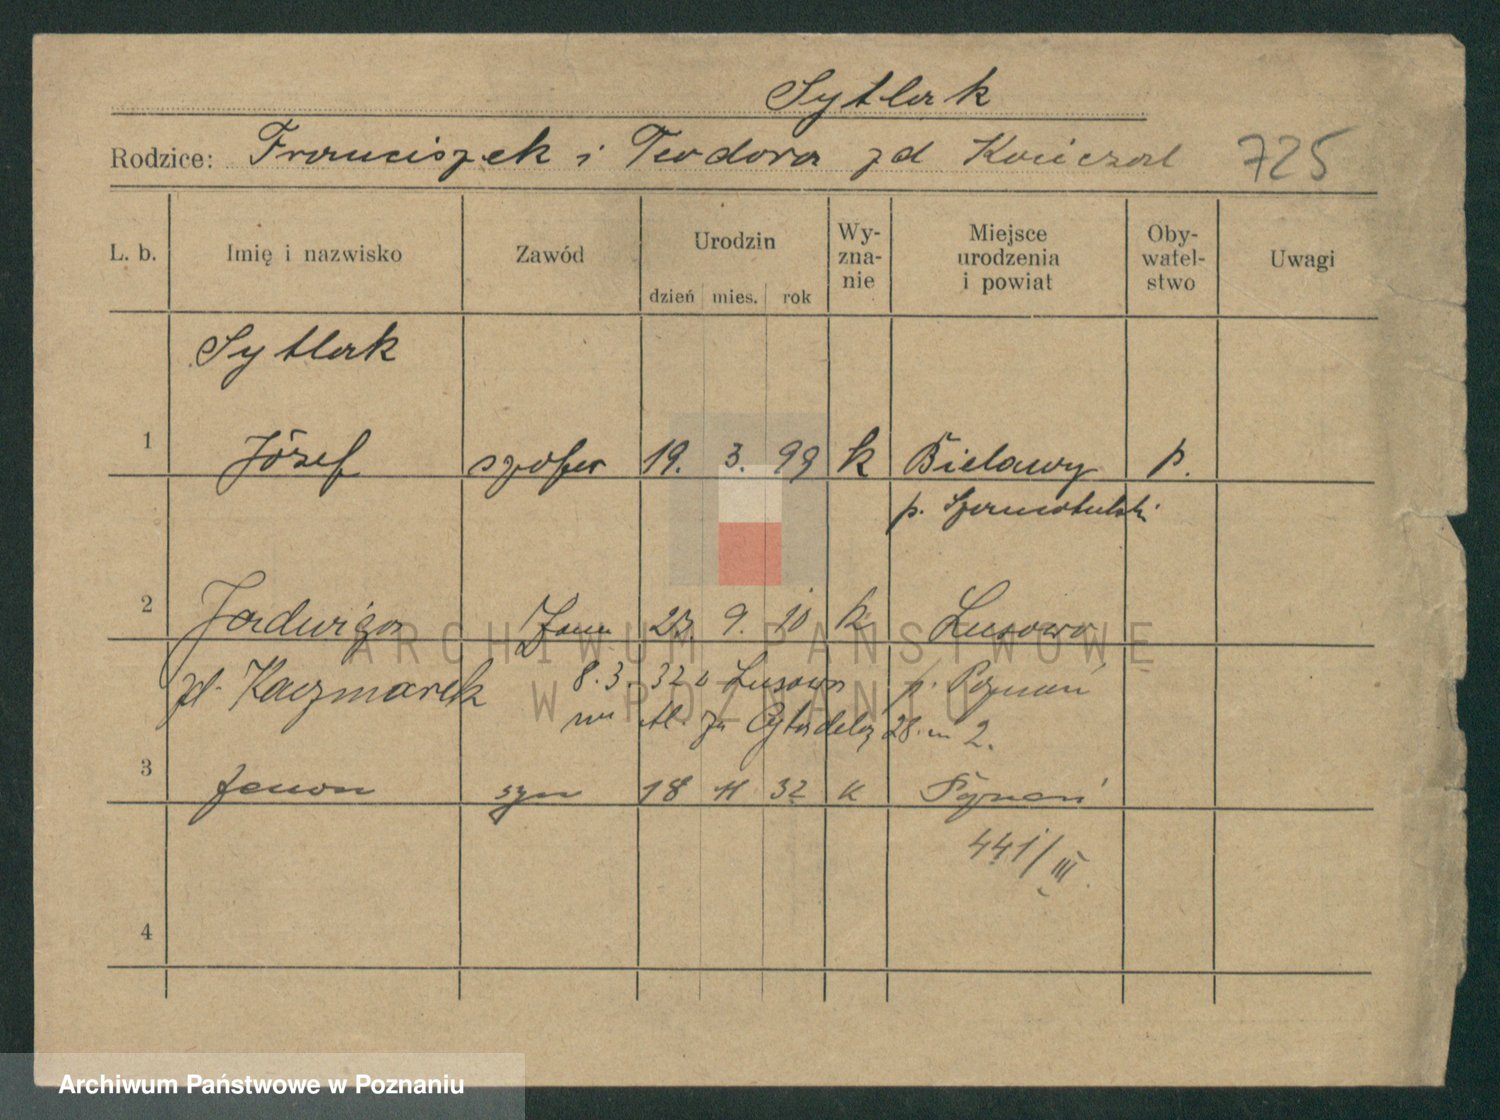 Sytlak
Rodzice: Franciszek i Teodora zd Kończal 725
L. b. Imię i nazwisko Zawód Urodzin Wy-zna-nie Miejsce urodzenia i powiat Oby-watel-stwo Uwagi
dzień mies. rok
Sytlak
1 Józef szofer 19. 3. 99 k Bielawy p.
p. Szamotulski
2 Jadwiga żona 23. 9. 10 k Lusowo
zd. Kaczmarek 8.3. 32 Lusowo p. Poznań
ul. za Cytadelą 28 m 2.
3 Zenon syn 18 11 32 k Poznań
441/III.
4
ARCHIWUM PAŃSTWOWE
W POZNANIU
Archiwum Państwowe w Poznaniu